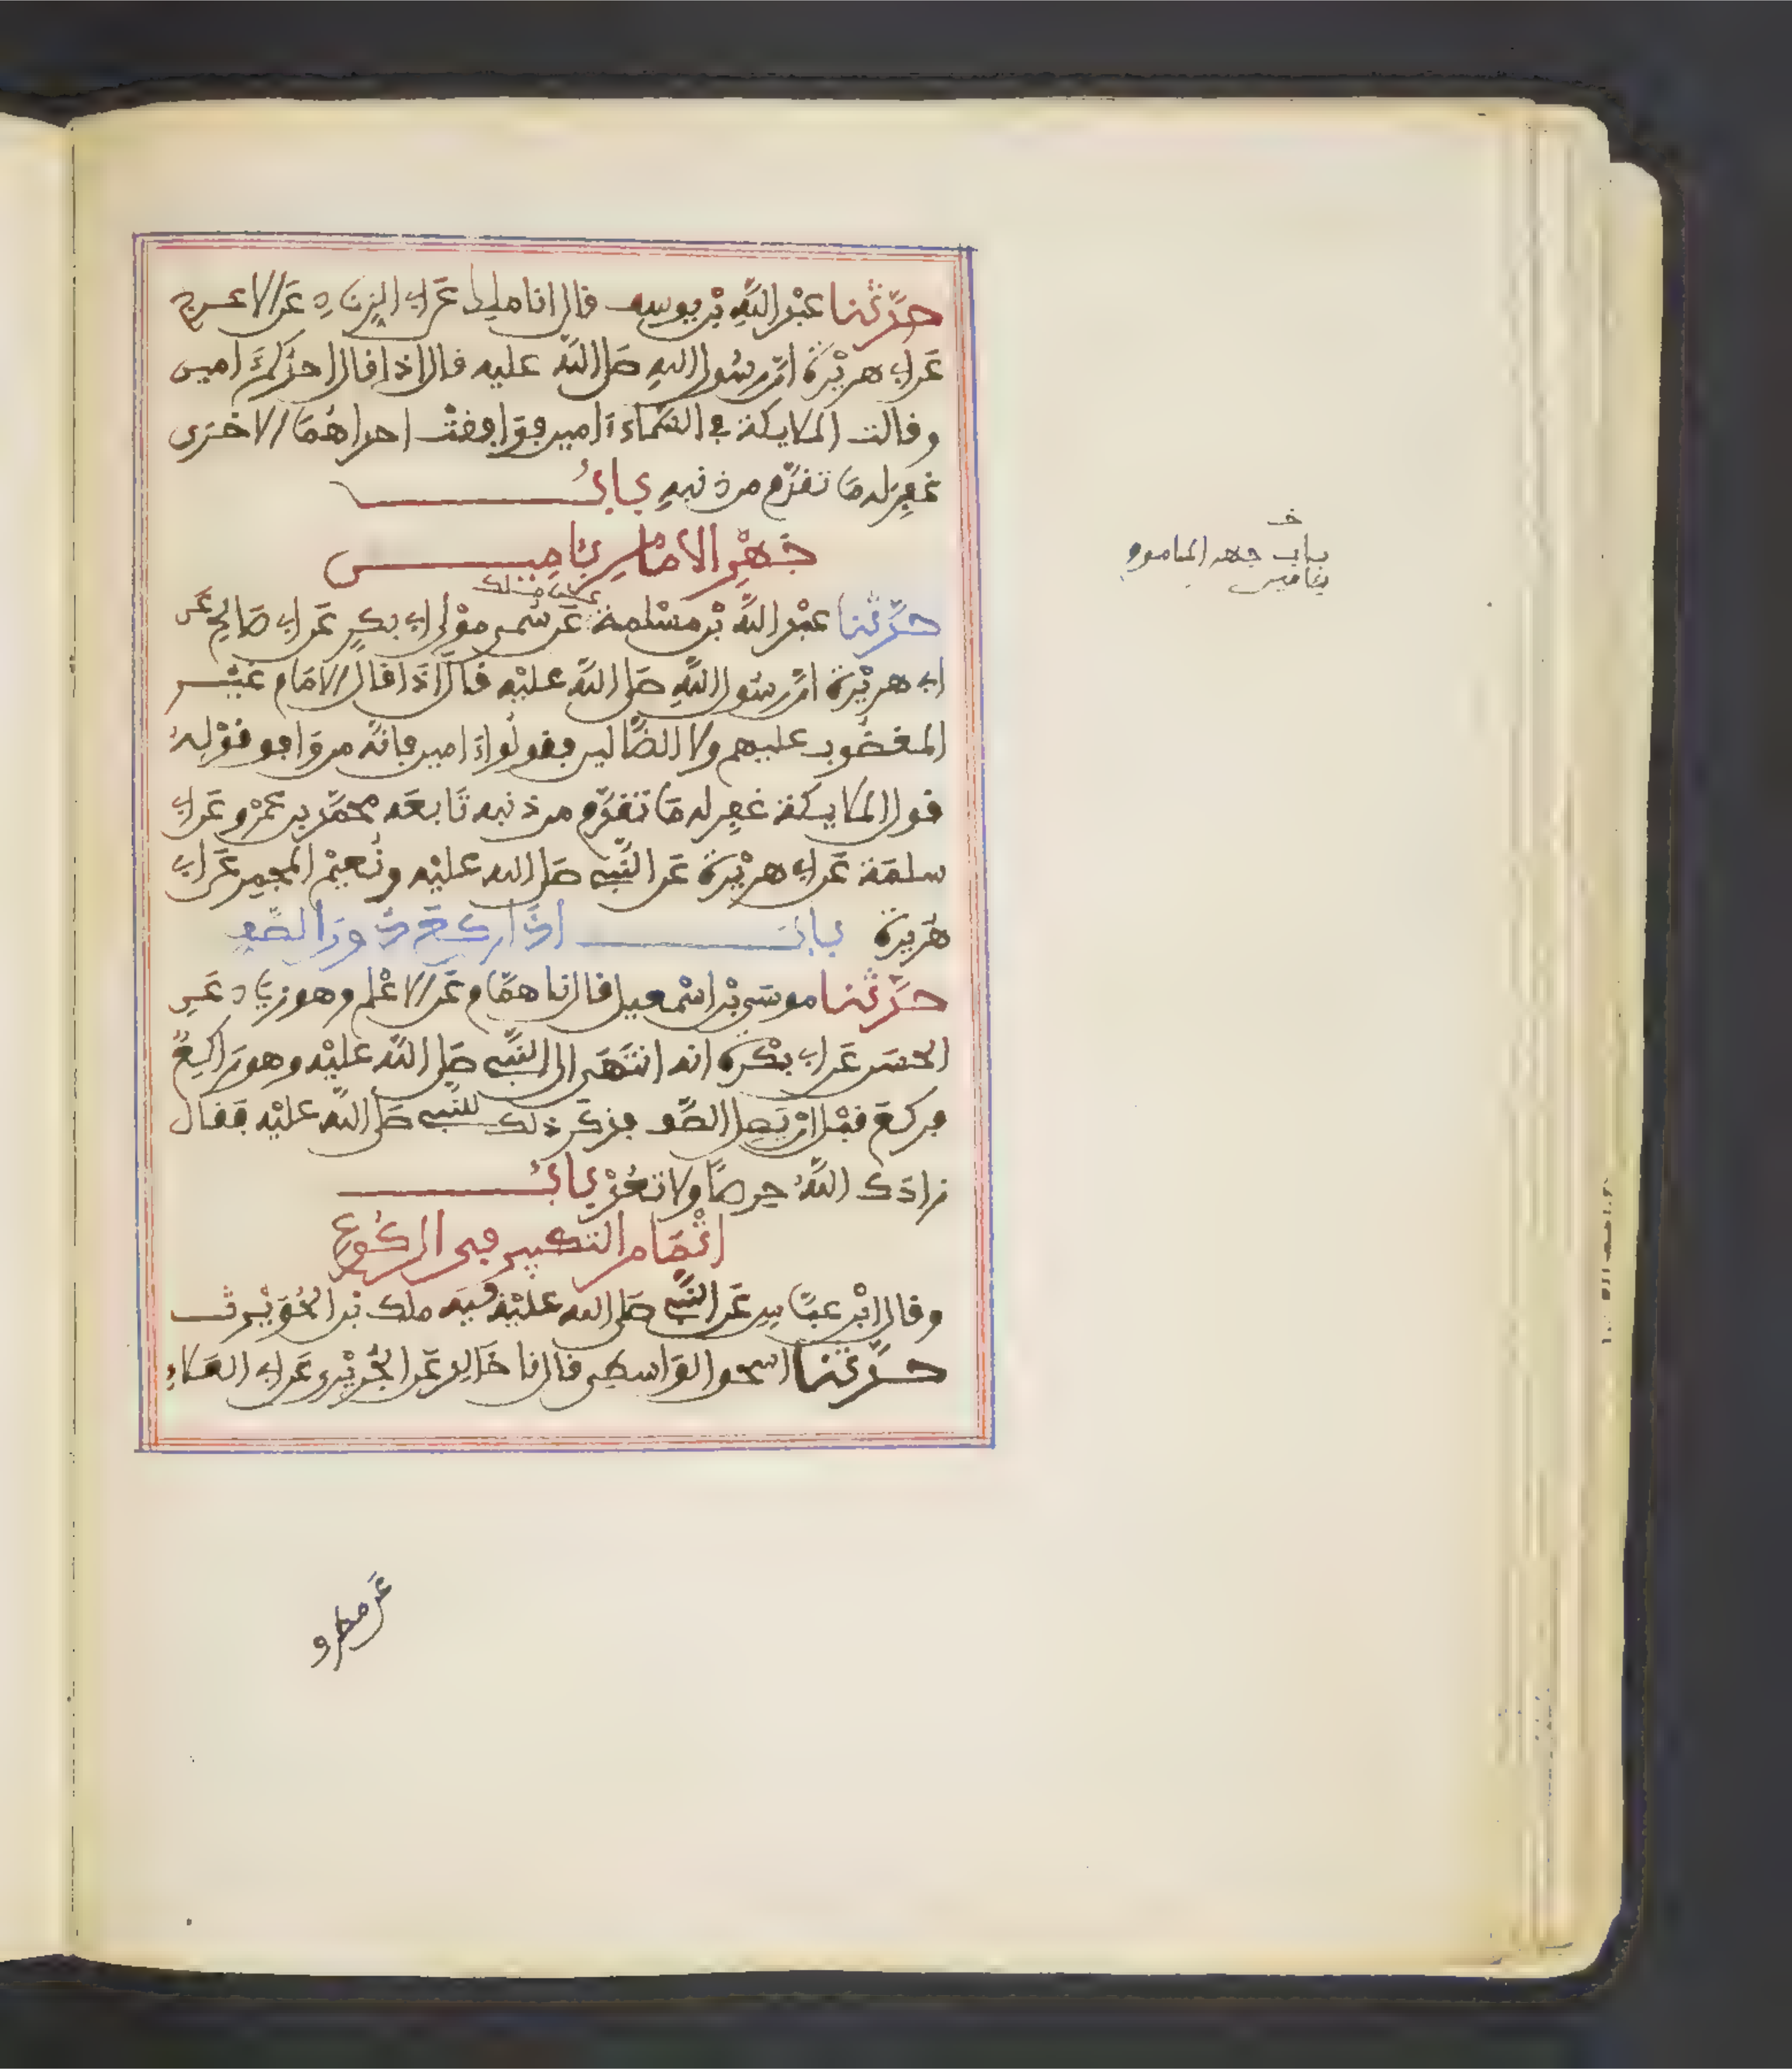 حدّثنا عبد اللّه بن يوسف قال انا ملك عن ابي الزناد عن الاعرج
عن ابي هريرة انّ رسول الله صلى اللّه عليه قال اذا قال احدكم امين
وقالت الملايكة في السّماء ءامين فوافقت احداهما الاخرى
غفر له ما تقدّم من ذنبه باب
جهر الامام بامين
حدّثنا عبد اللّه بن مسلمة عن ملك
عن سُمي مولى ابي بكر عن ابي صالح عن
ابي هريرة انّ رسول اللّه صلى اللّه عليه قال اذا قال الامام غير
المغضوب عليهم ولا الضّالين فقولواءامين فانّه من وافق قوله
قول الملايكة غفر له ما تقدّم من ذنبه تابعه محمّد بن عمرو عن ابي
سلمة عن ابي هريرة عن النّبي صلى الله عليه ونُعيم المجمر عن ابي
هريرة باب اذا ركع دون الصّف
حدّثنا موسى بن اسمعيل قال نا همّام عن الاعلم وهو زياد عن
الحسن عن ابي بكرة انه انتهى الى النّبي صلى اللّه عليه وهو راكع
فركع قبل ان يصل الصّف فذكر ذلك للنّبي صلى اللّه عليه فقال
زادك اللّه حرصًا ولا تعُدْ باب
اتمام التكبير في الركوع
وقال ابن عبّاس عن النّبي صلى الله عليه فيه ملك بن الحويرث
حدّثنا اسحق الواسطي قال نا خالد عن الجُريري عن ابي العلاء
خ
باب جهر الماموم
بئامين
عن مطرف